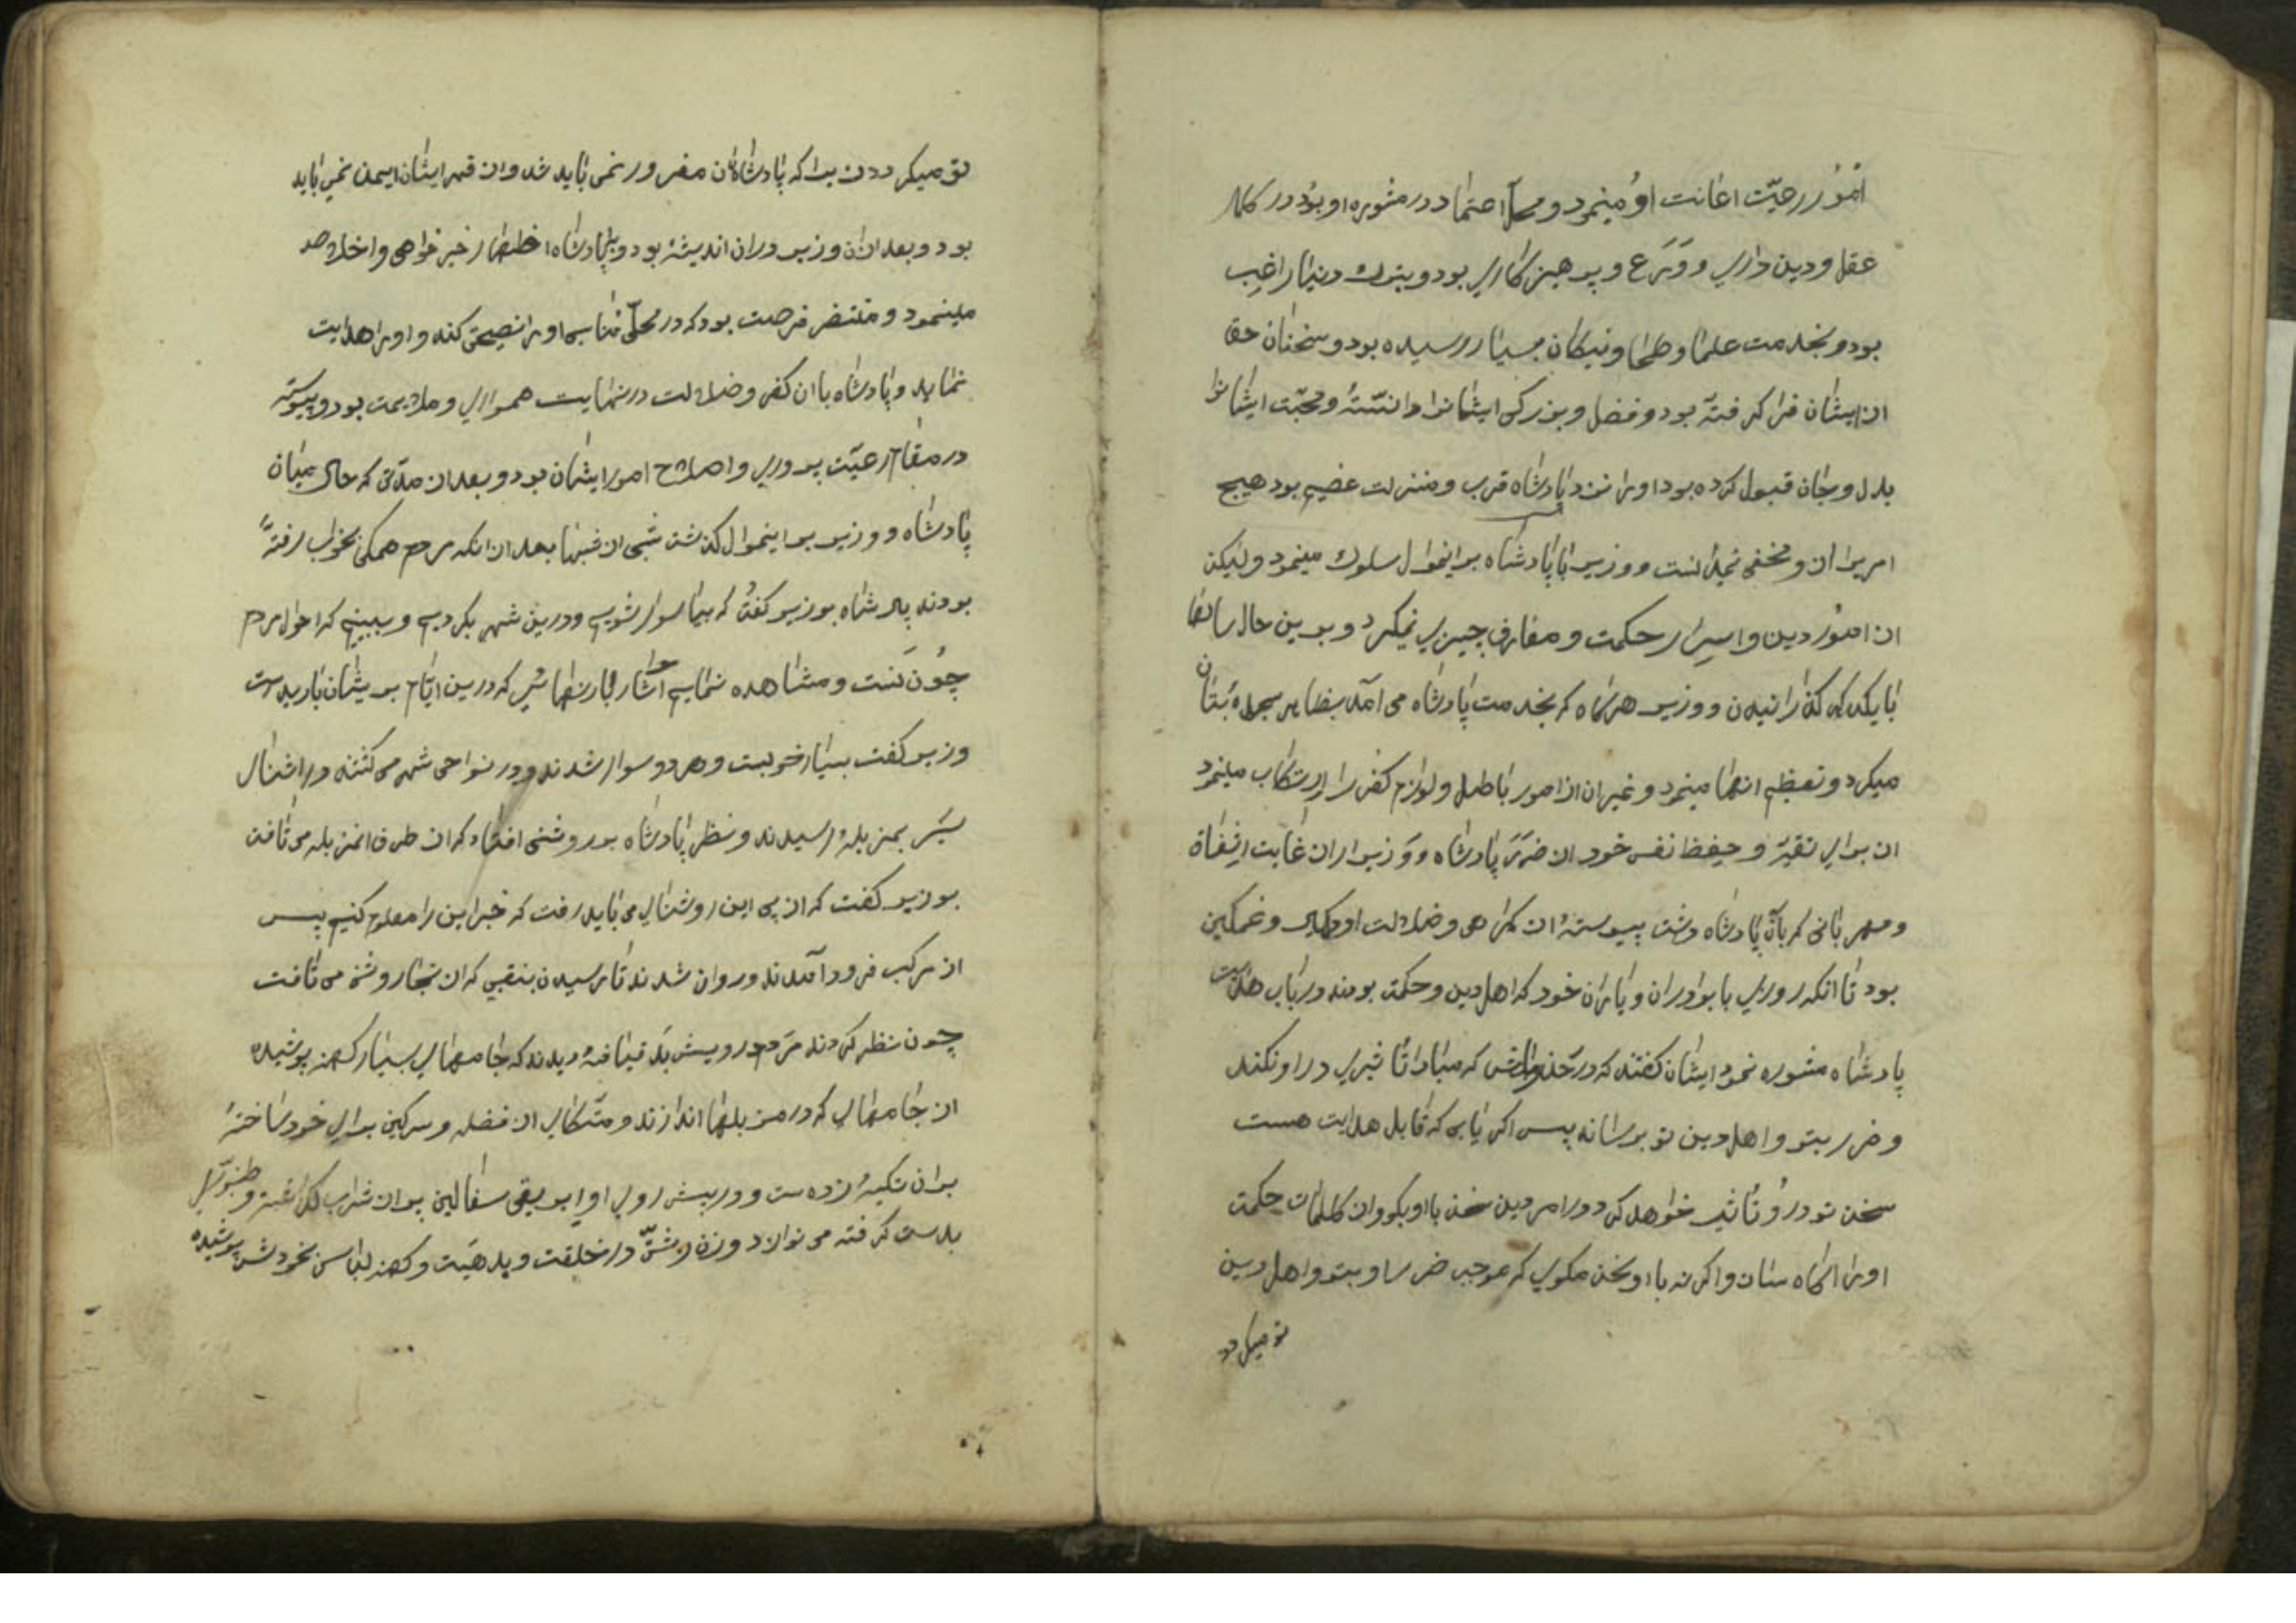 امور رعیّت اعانت او مینمود و محلّ اعتماد در مشوره او بود در کمال
عقل و دین داری و وَرَع و پرهیزکاری بود و بترک دنیا راغِب
بود و بخدمت علما و صلحا و نیکان بسیار رسیده بود و سخنان حق
از ایشان فرا کرفته بود و فضل و بزرکی ایشانرا دانسته و محبّت ایشانرا
بدل و بجان قبول کرده بود اورا نزد پادشاه قرب و منزلت عضیم بود هیچ
امریرا از و مخفی نمیدانست و وزیر با پادشاه برینموال سلوک مینمود ولیکن
از امور دین و اسرار حکمت و معارف چیزی نمیکرد و برین حال سالها
با یکدیکر کذرانیدن و وزیر هرکاه که بخدمت پادشاه می امد بظاهر سجده بتان
میکرد و تعظیم انها مینمود و غیر ان از امور باطل و لوازم کفر را ارتکاب مینمود
از برای تقیّه و حِفظ نفس خود از ضرر پادشاه و وزیر از ان غایت اشفاق
و مهربانی که بآن پادشاه دشت پیوسته از کمراهی و ضلالت او دلکیر و غمکین
بود تا انکه روزی با برادران و یاران خود که اهل دین و حکمت بودند در باب هدایت
پادشاه مشوره نمود ایشان کفتند که در حذر باش که مبادا تاثیری در او نکند
و ضرر بتو و اهل دین تو برسانه پس اکر یابی که قابل هدایت هست
سخن تو در و تاثیر خواهد کرد در امر دین سخن با او بکو و از کلمات حکمت
اورا اکاه ستان و اکر نه با او سخن مکوی که موجب ضرر او بتو و اهل دین
تو میکردد
تو میکردد زیرا که پادشاهان مغرور نمی باید شد و از قهر ایشان ایمن نمی باید
بود و بعد از ان وزیر در ان اندیشه بود و بپادشاه اظهار خیر خواهی و اخلاص
مینمود و منتضر فرصت بود که در محلّ مناسبی اورا نصیحتی کند و اورا هدایت
نماید و پادشاه با ان کفر و ضلالت در نهایت همواری و ملایمت بود و پیوسته
در مقام رعیّت پروری و اصلاح امور ایشان بود و بعد از مدّتی که حال میان
پادشاه و وزیر برینموال کذشت شبی از شبها بعد از انکه مردم همکی بخواب رفته
بودند پادشاه بوزیر کفت که بیا سوار شویم و درین شهر بکردیم و ببینیم که احوال مردم
چون است و مشاهده نماییم آثار بارنهائی که درین ایّام بریشان باریده است
وزیر کفت بسیار خوبست و هر دو سوار شدند و در نواحی شهر می کشتند در اثنای
سَیر بمزبلهٔ رسیدند و نظر پادشاه بر روشنی افتاد که از طرف انمزبله می تافت
بوزیر کفت که از پی این روشنای می باید رفت که خبر این را معلوم کنیم پس
از مرکب فرود آمدند و روان شدند تا رسیدن بنقبی که از نجا روشنی می تافت
چون نظر کردند مرد درویش بد قیافهٔ دیدند که جامهای بسیار کهنه پوشیده
از جامهای که در مزبلها اندازند و متّکای از فضله و سرکین برای خود ساخته
بر ان تکیه زده ست و در پیش روی او ابریقی سفالین پر از شراب کذاشته و طنبوری
بدست کرفته می نوازد و زن زشتی در خلقت و بد هیئت و کهنه لباس نخودش پوشیده